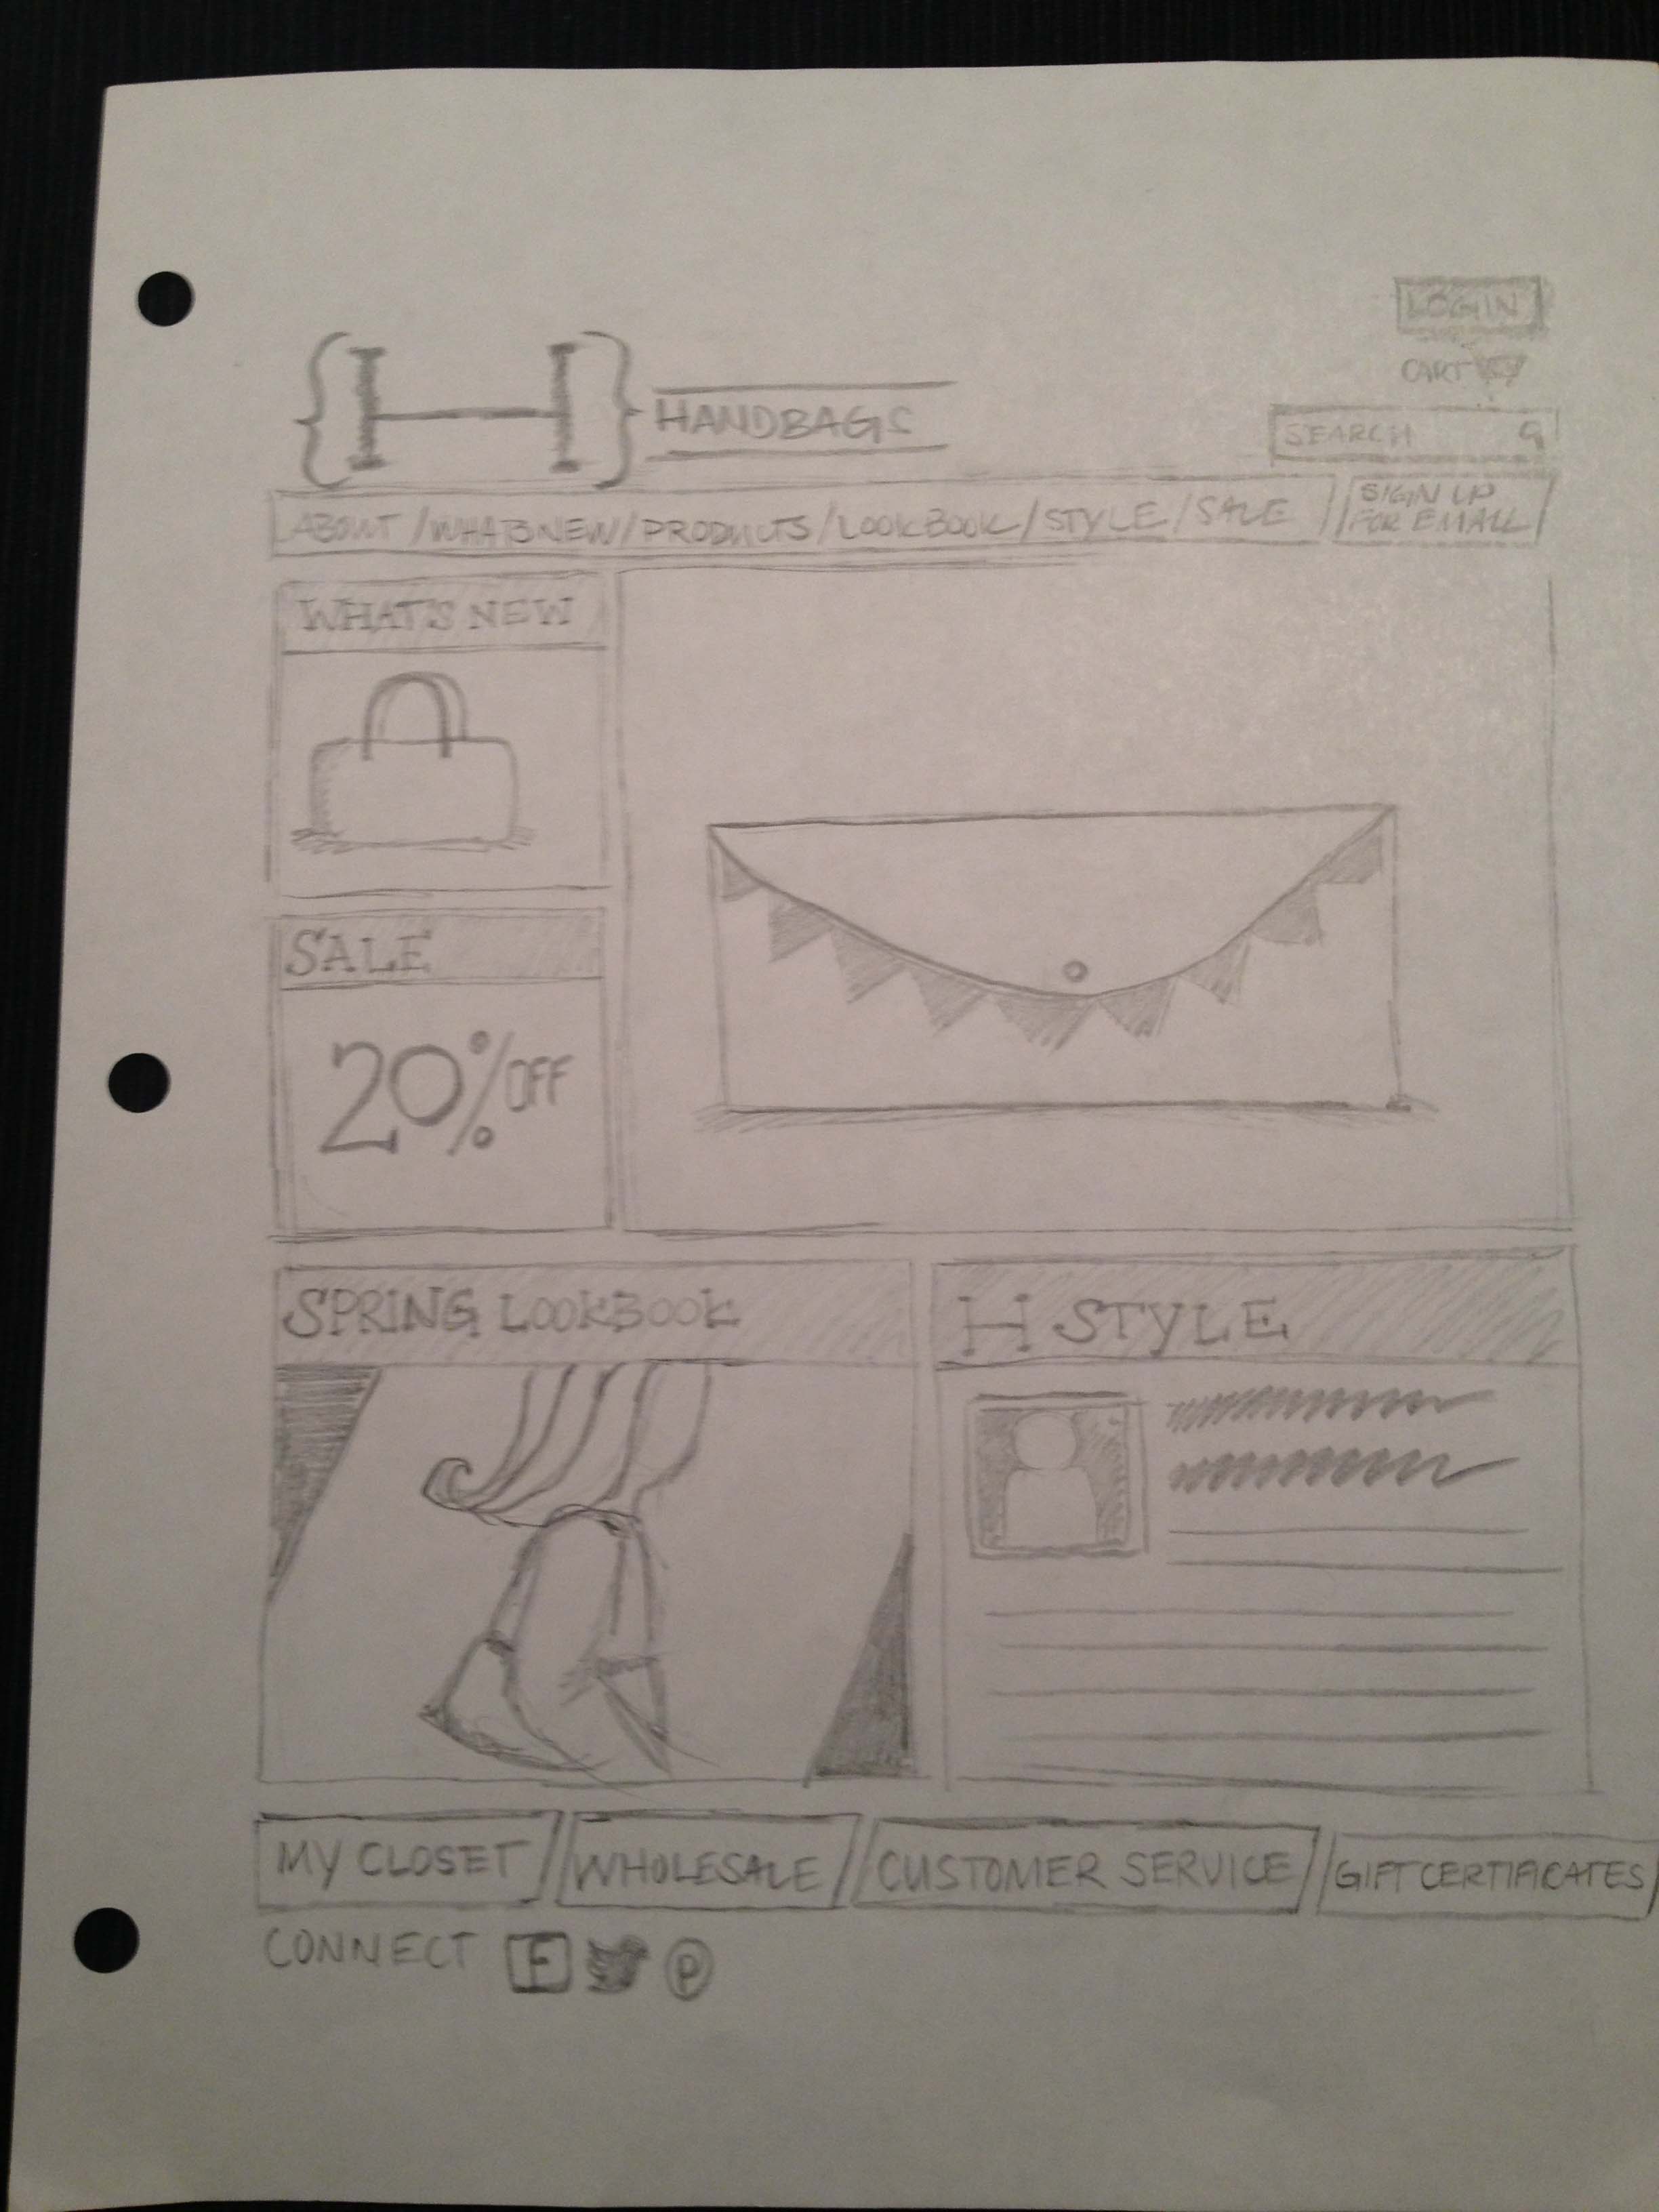 LOGIN
CART
{H} HANDBAGS
SEARCH
ABOUT / WHAT'S NEW / PRODUCTS / LOOKBOOK / STYLE / SALE
SIGN UP
FOR EMAIL
WHAT'S NEW
SALE
20% OFF
SPRING LOOKBOOK
H STYLE
MY CLOSET / WHOLESALE / CUSTOMER SERVICE / GIFT CERTIFICATES
CONNECT F P